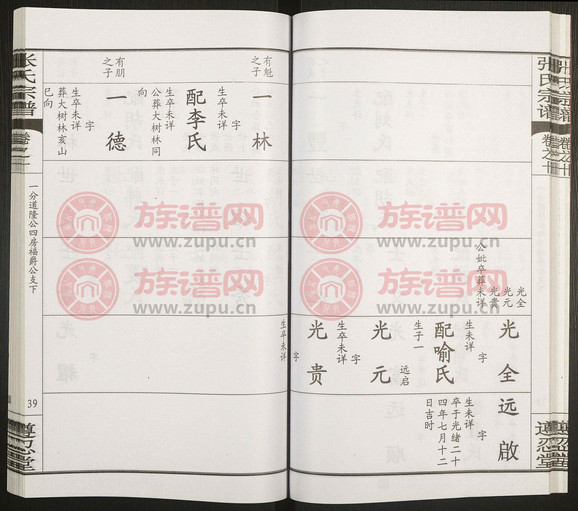 张氏宗谱
卷之十
遵忍堂
光全
光元
光贵
公妣卒葬未详
光全
字
生未详
配喻氏
生子一
远启
光元
字
生卒未详
光贵
字
生卒未详
远啟
字
生未详
卒于光绪二十
四年七月十二
日吉时
有魁
之子
一林
字
生卒未详
配李氏
字
生卒未详
公葬大树林同
向
有朋
之子
一德
字
生卒未详
葬大树林亥山
巳向
张氏宗谱
一分道隆公四房福爵公支下
39
遵忍堂
族谱网
www.zupu.cn
族谱网
www.zupu.cn
族谱网
www.zupu.cn
族谱网
www.zupu.cn